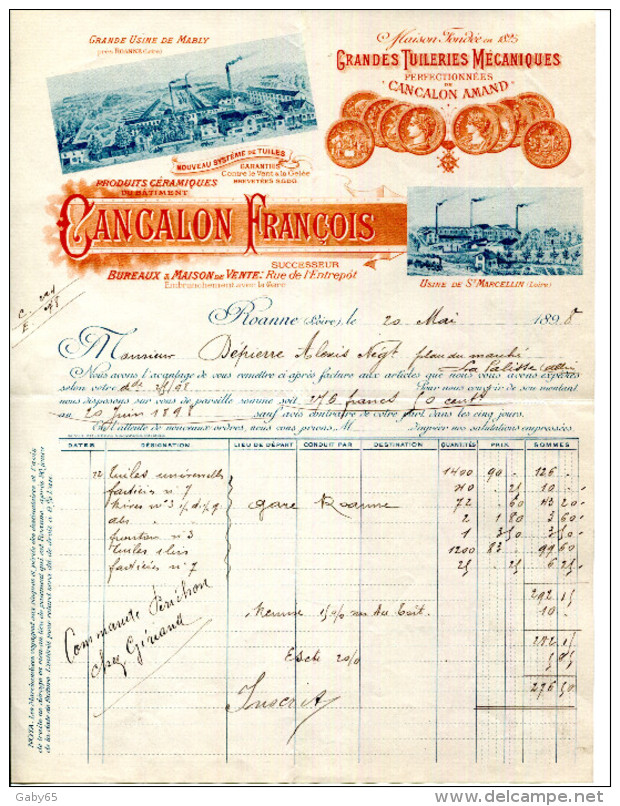 GRANDE USINE DE MABLY
près ROANNE (Loire)
Maison Fondée en 1825
GRANDES TUILERIES MÉCANIQUES
PERFECTIONNÉES
DE
CANCALON AMAND
NOUVEAU SYSTÈME DE TUILES
GARANTIES
Contre le Vent & la Gelée
BREVETÉES S.G.D.G.
PRODUITS CÉRAMIQUES
DU BÂTIMENT
CANCALON FRANÇOIS
SUCCESSEUR
BUREAUX & MAISON DE VENTE: Rue de l'Entrepôt
Embranchement avec la Gare
USINE DE ST MARCELLIN (Loire)
Roanne (Loire), le 20 Mai 1898
Monsieur Dépierre Alexis Negt place du marché
La Palisse (Allier)
Nous avons l'avantage de vous remettre ci après facture aux articles que nous vous avons expédiés
selon votre 98. Pour nous couvrir de son montant
nous disposons sur vous de pareille somme soit 276 francs 50 cent
au 20 Juin 1898 sauf avis contraire de votre part dans les cinq jours.
En attente de nouveaux ordres, nous vous prions, M d'agréer nos salutations empressées.
DATES DÉSIGNATION LIEU DE DÉPART CONDUIT PAR DESTINATION QUANTITÉS PRIX SOMMES
12 tuiles universelles 1400 90 126
faitières n° 7 40 25 10
n° 3 gare Roanne 72 60 43 20
2 1 80 3 60
fronton n° 3 1 3 50 3 50
tuiles 1200 83 99 60
faitières n° 7 25 25 6 25
292 15
Remise 10
282 15
Escte 2 0/0 5 65
276 50
Commande Périchon
chez Giraud
Inscrit
NOTA. Les Marchandises voyagent aux risques et périls des destinataires
Gaby65